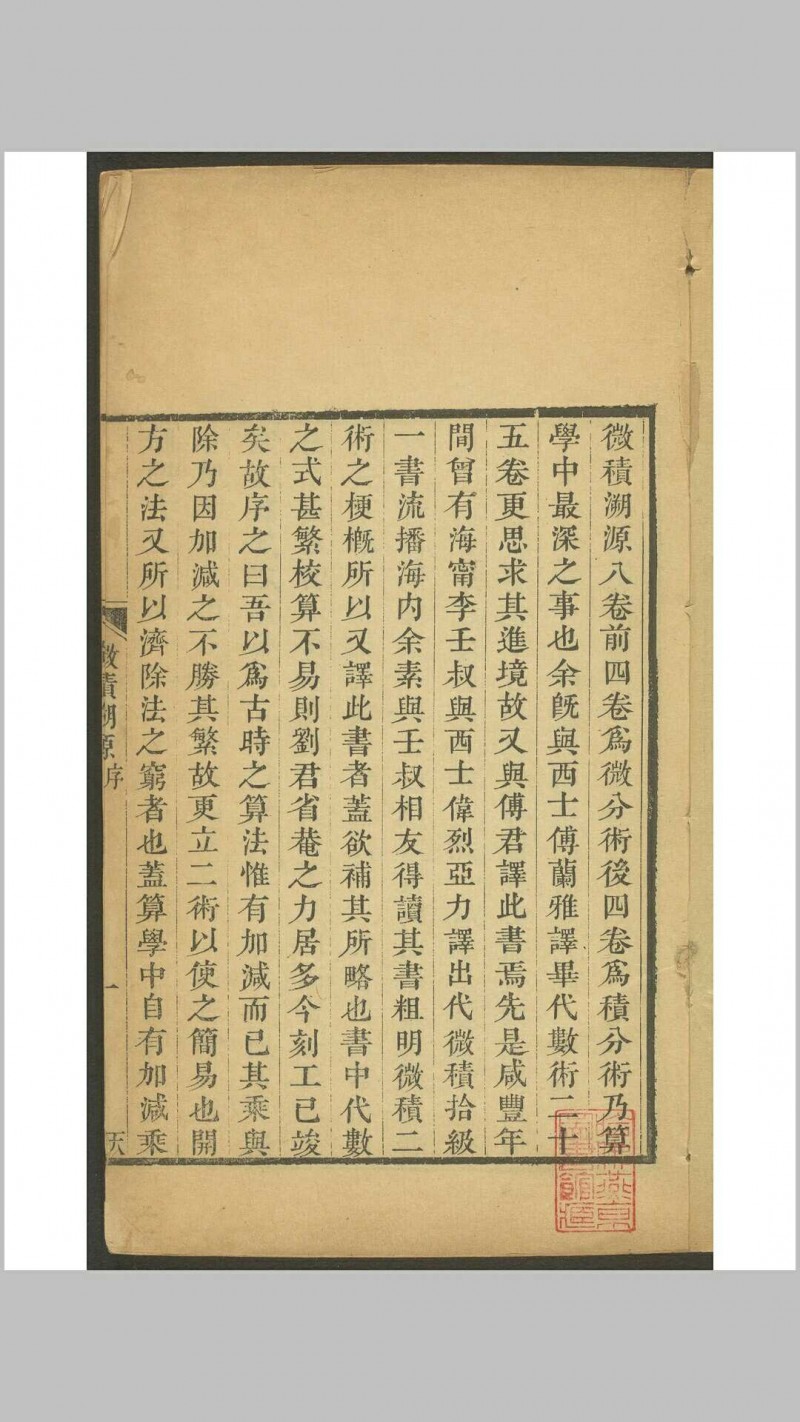 微積溯源八卷前四卷爲微分術後四卷爲積分術乃算
學中最深之事也余既與西士傅蘭雅譯畢代數術二十
五卷更思求其進境故又與傅君譯此書焉先是咸豐年
間曾有海甯李壬叔與西士偉烈亞力譯出代微積拾級
一書流播海內余素與壬叔相友得讀其書粗明微積二
術之梗概所以又譯此書者蓋欲補其所略也書中代數
之式甚繁校算不易則劉君省菴之力居多今刻工已竣
矣故序之曰吾以爲古時之算法惟有加減而已其乘與
除乃因加減之不勝其繁故更立二術以使之簡易也開
方之法又所以濟除法之窮者也蓋算學中自有加減乘
微積溯源序
一
天
燕京
館